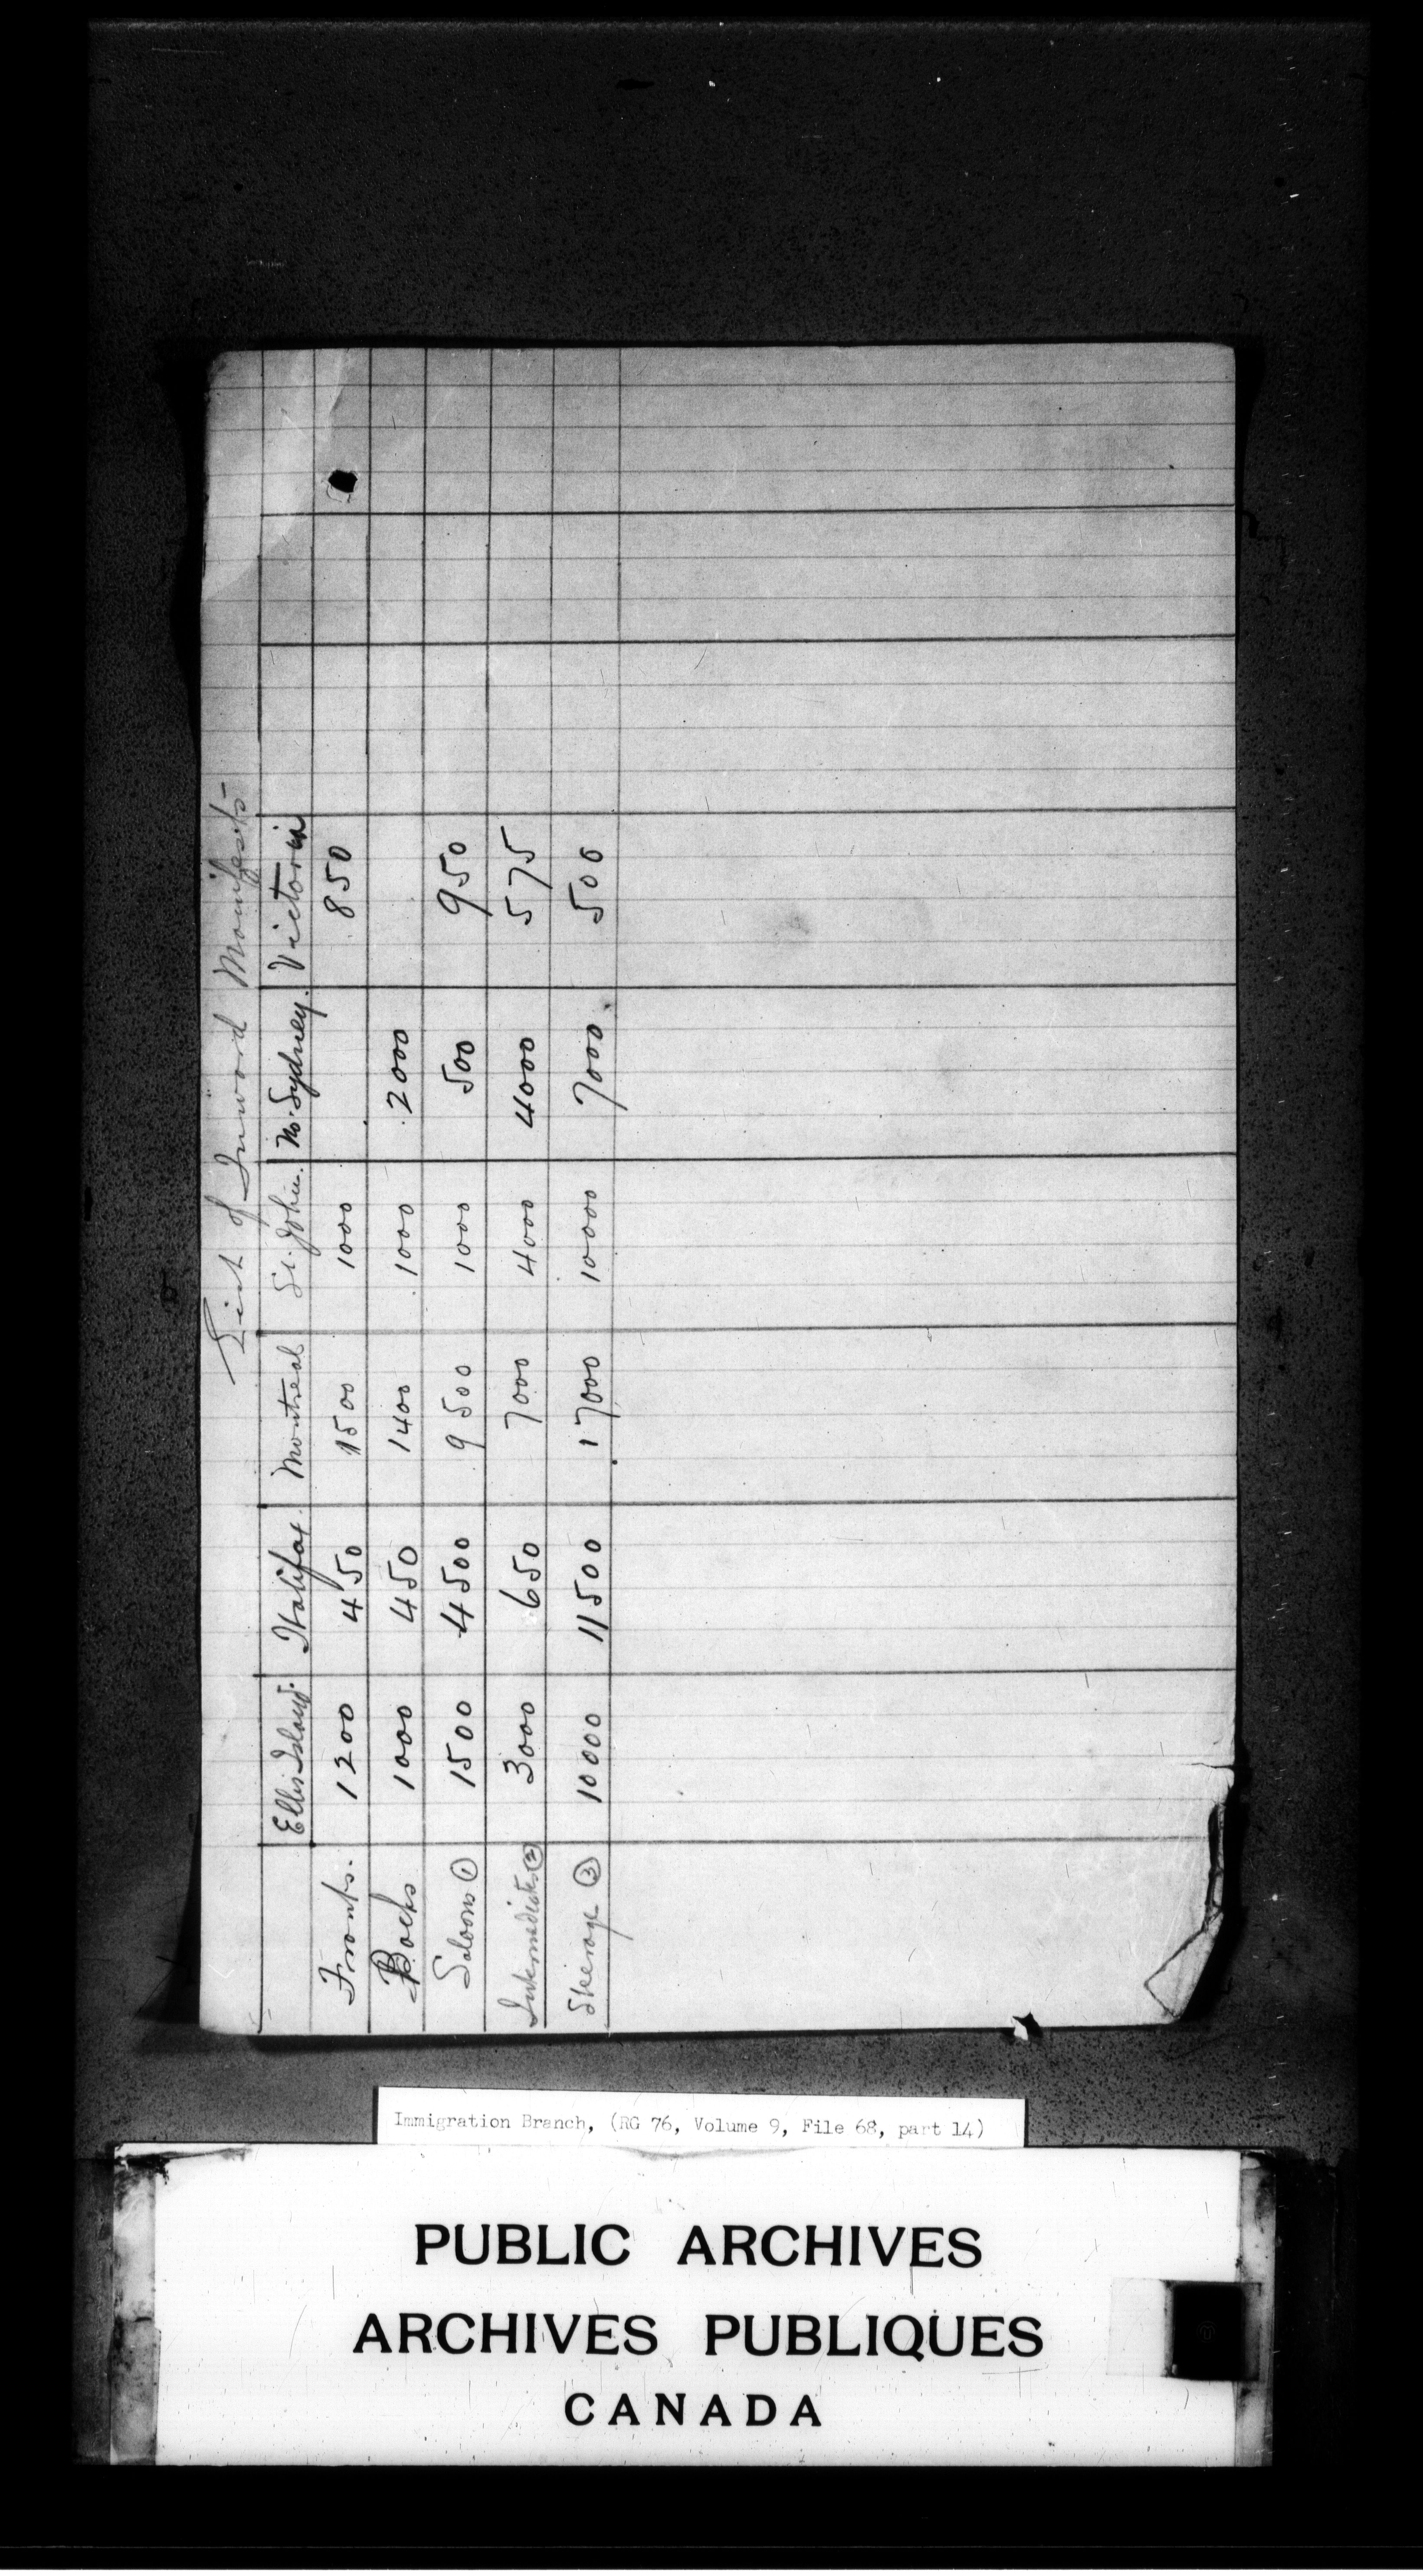 List of Inward Manifests
Ellis Island. Halifax. Montreal St. John. No. Sydney. Victoria
Fronts. 1200 450 1500 1000 850
Backs 1000 450 1400 1000 2000
Saloons ① 1500 4500 9500 1000 500 950
Intermediates ② 3000 650 7000 4000 4000 575
Steerage ③ 10000 11500 17000 10000 7000 500
Immigration Branch, (RG 76, Volume 9, File 68, part 14)
PUBLIC ARCHIVES
ARCHIVES PUBLIQUES
CANADA